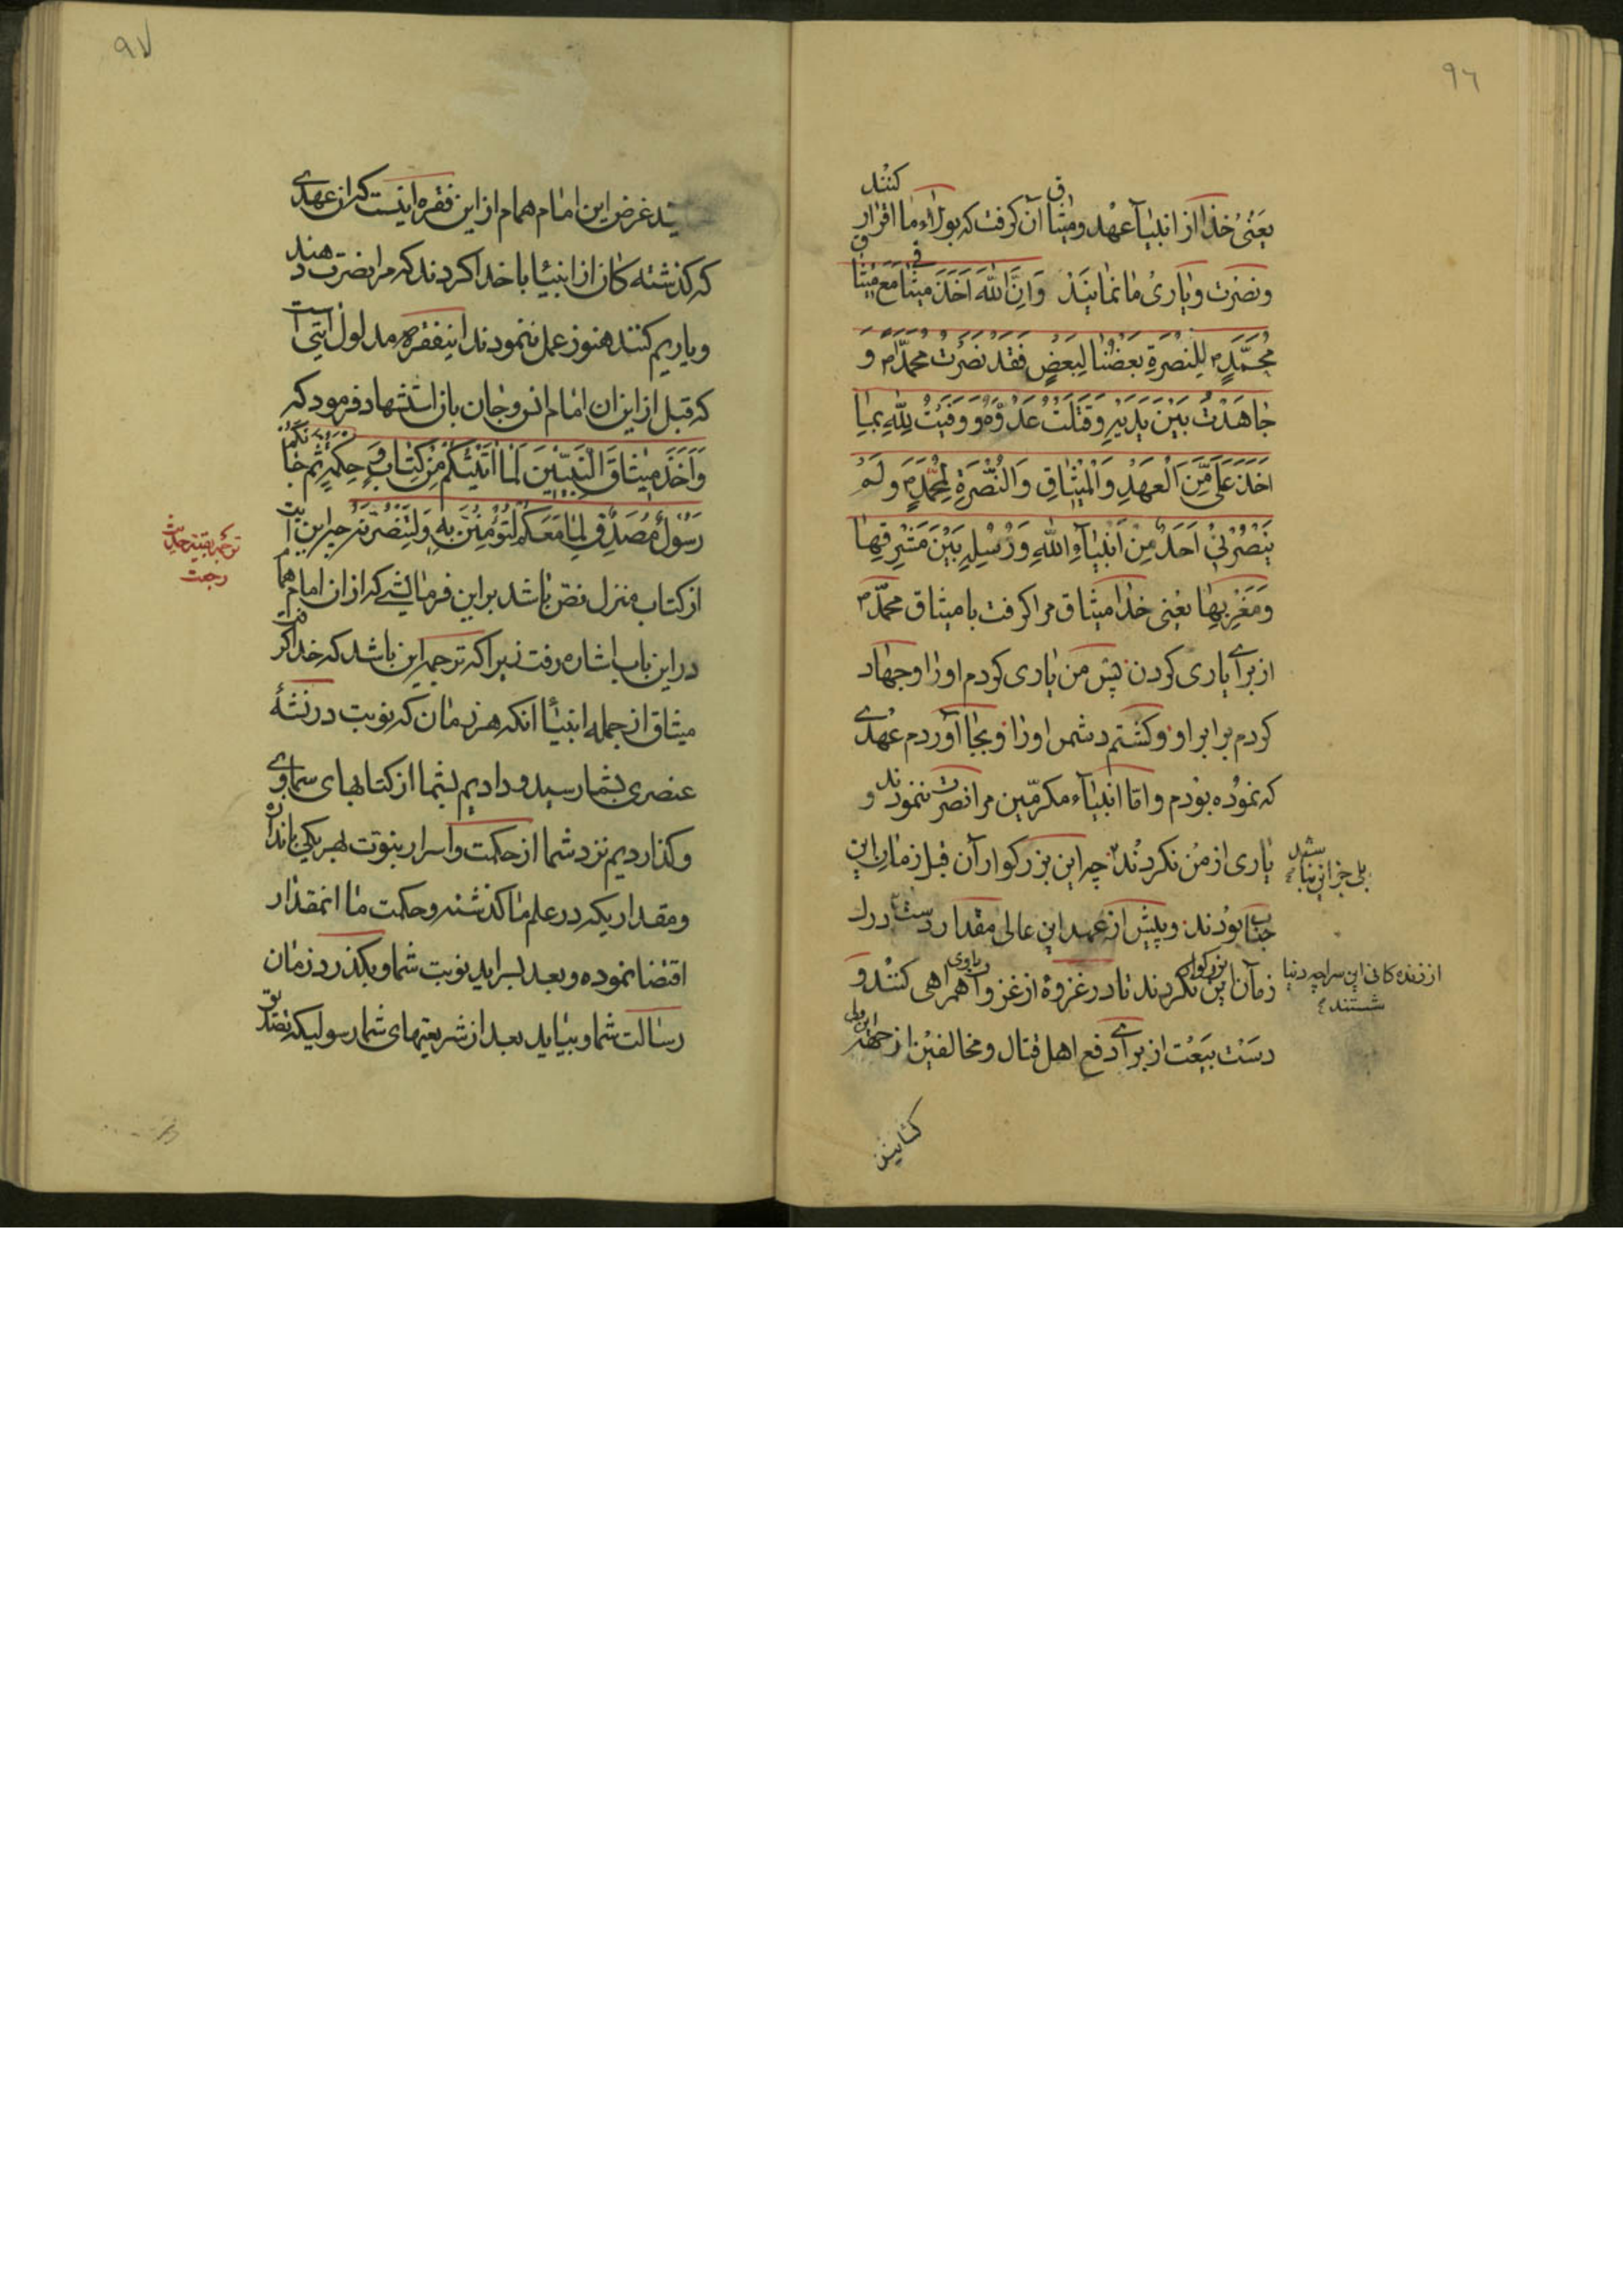 ٩٦
یعنی خدا از انبیآ عهد و میثاق آن گرفت که بولاء ما اقرار کنند
و نصرت و یاری ما نمایند وَاِنَّ اللّٰهَ اَخَذَ میثاقی مَعَ میثاق
مُحَمَّدٍ ص لِلنُصْرَةِ بَعضُنا لِبَعْضٍ فَقَد نَصَرْتُ محمّداً ص وَ
جاهَدْتُ بَیْنَ یَدَیْهِ وَقَتَلْتُ عَدُوَّهُ وَ وَفَیْتُ لِلّٰهِ بِما
اَخَذَ عَلَیَّ مِنَ الْعَهْدِ وَالْمیثاقِ وَالنُّصْرَةِ لِمُحَمَّدٍ ص وَلَمْ
یَنْصُرْنی اَحَدٌ مِنْ اَنْبِیآءِ اللّٰهِ وَرُسُلِهِ بَیْنَ مَشْرِقِها
وَمَغْرِبِها یعنی خدا میثاق مرا گرفت با میثاق محمّد ص
از برای یاری کردن پس من یاری کردم او را و جهاد
کردم برابر او و کشتم دشمن او را و بجا آوردم عهدی
که نموده بودم و امّا انبیآء مکرّمین مرا نصرت ننمودند و
یاری از من نکردند چه این بزرگواران قبل از زمان این
بلی جز انبیا
جناب بودند و پیش از عهد این عالی مقدار
زمان این بزرگوار نکردند تا در غزوهٔ از غزوات همراهی کنند و
از زنده کانی این سراچه دنیا
شستند
دست بیعت از برای دفع اهل قتال و مخالفین از جهة این ولی
٩٧
ـید غرض این امام همام از این فقره اینست که ان عهدی
که گذشته کان از انبیا با خدا کردند که مرا نصرت دهند
و یاریم کنند هنوز عمل ننمودند اینفقره مدلول آیتی است
که قبل از این ان امام انس و جان باز استشهاد فرمود که
وَاَخَذَ میثاقَ النَّبِیّینَ لَما اٰتَیْتُکُمْ مِنْ کِتابٍ وَ حِکْمَةٍ ثُمَّ جاءَکُمْ
رَسُولٌ مُصَدِّقٌ لِما مَعَکُمْ لَتُؤْمِنُنَّ بِهِ وَلَتَنْصُرُنَّهُ چه این آیت
ترجمه بقیه حدیث
رجعت
از کتاب منزل نصّ باشد بر این فرمایشی که از ان امام همام
در این باب اشاره رفت زیرا که ترجمه این باشد که خدا گرفت
میثاق از جمله انبیا انکه هر زمان که نوبت در نشأهٔ
عنصری بشما رسید و دادیم بشما از کتابهای سماوی
و گذاردیم نزد شما از حکمت و اسرار نبوت بهر یکی باندازه
و مقداریکه در علم ما گذشته و حکمت ما انمقدار
اقتضا نموده و بعد بسر اید نوبت شما و بگذرد زمان
رسالت شما و بیاید بعد از شریعتهای شما رسولیکه تصدیق